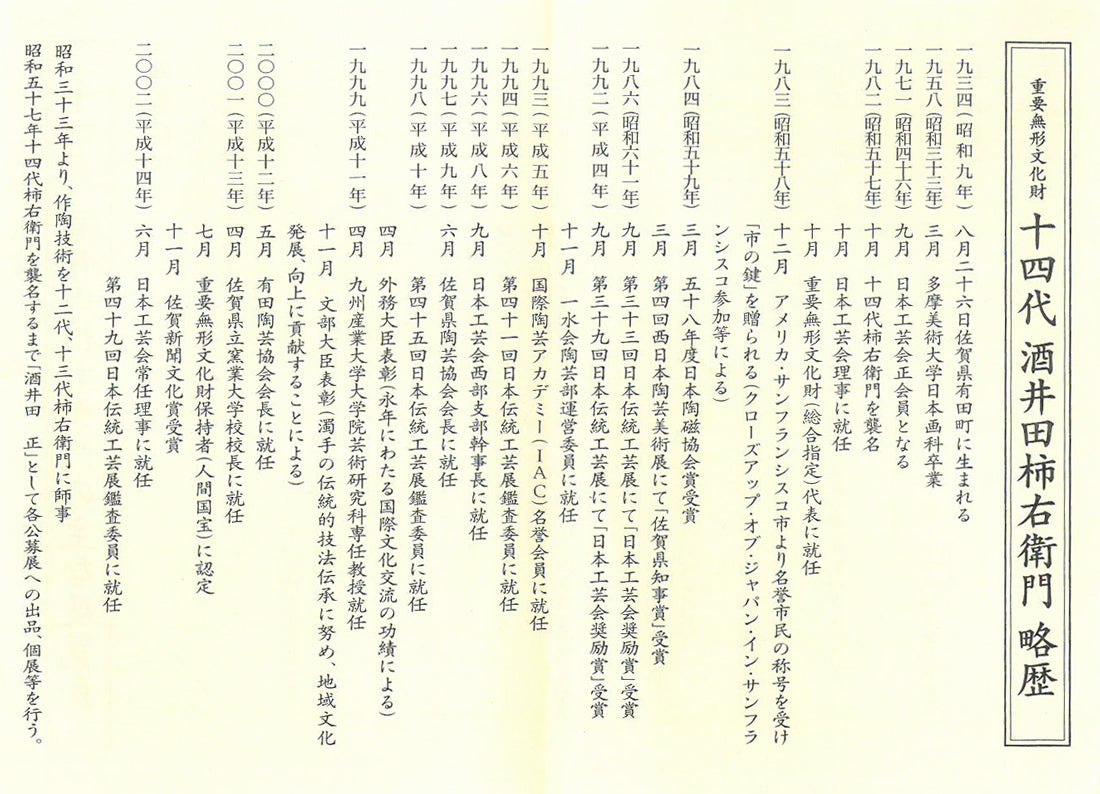 重要無形文化財 十四代 酒井田柿右衛門 略歴
一九三四(昭和九年) 八月二十六日佐賀県有田町に生まれる
一九五八(昭和三十三年) 三月 多摩美術大学日本画科卒業
一九七一(昭和四十六年) 九月 日本工芸会正会員となる
一九八二(昭和五十七年) 十月 十四代柿右衛門を襲名
十月 日本工芸会理事に就任
十月 重要無形文化財(総合指定)代表に就任
一九八三(昭和五十八年) 十二月 アメリカ・サンフランシスコ市より名誉市民の称号を受け
「市の鍵」を贈られる(クローズアップ・オブ・ジャパン・イン・サンフラ
ンシスコ参加等による)
一九八四(昭和五十九年) 三月 五十八年度日本陶磁協会賞受賞
三月 第四回西日本陶芸美術展にて「佐賀県知事賞」受賞
一九八六(昭和六十一年) 九月 第三十三回日本伝統工芸展にて「日本工芸会奨励賞」受賞
一九九二(平成四年) 九月 第三十九回日本伝統工芸展にて「日本工芸会奨励賞」受賞
十一月 一水会陶芸部運営委員に就任
一九九三(平成五年) 十月 国際陶芸アカデミー(IAC)名誉会員に就任
一九九四(平成六年) 第四十一回日本伝統工芸展鑑査委員に就任
一九九六(平成八年) 九月 日本工芸会西部支部幹事長に就任
一九九七(平成九年) 六月 佐賀県陶芸協会会長に就任
一九九八(平成十年) 第四十五回日本伝統工芸展鑑査委員に就任
四月 外務大臣表彰(永年にわたる国際文化交流の功績による)
一九九九(平成十一年) 四月 九州産業大学大学院芸術研究科専任教授就任
十一月 文部大臣表彰(濁手の伝統的技法伝承に努め、地域文化
発展、向上に貢献することによる)
二〇〇〇(平成十二年) 五月 有田陶芸協会会長に就任
二〇〇一(平成十三年) 四月 佐賀県立窯業大学校校長に就任
七月 重要無形文化財保持者(人間国宝)に認定
十一月 佐賀新聞文化賞受賞
二〇〇二(平成十四年) 六月 日本工芸会常任理事に就任
第四十九回日本伝統工芸展鑑査委員に就任
昭和三十三年より、作陶技術を十二代、十三代柿右衛門に師事
昭和五十七年十四代柿右衛門を襲名するまで「酒井田 正」として各公募展への出品、個展等を行う。